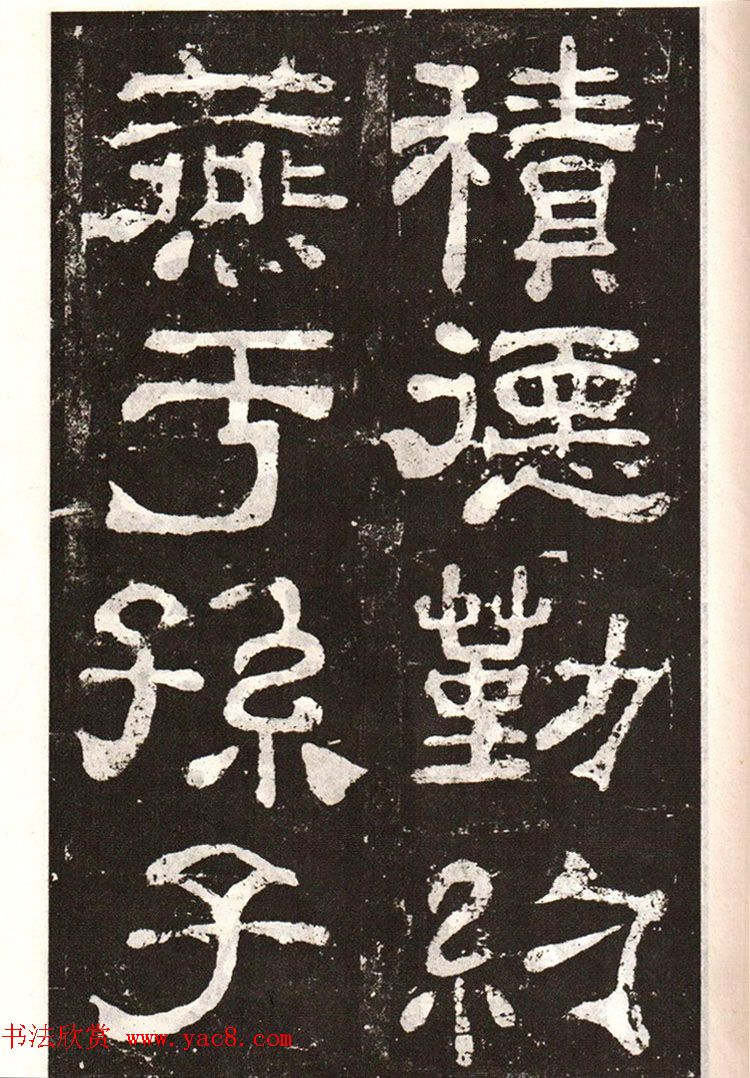 積德勤約
燕于孫子
书法欣赏 www.yac8.com